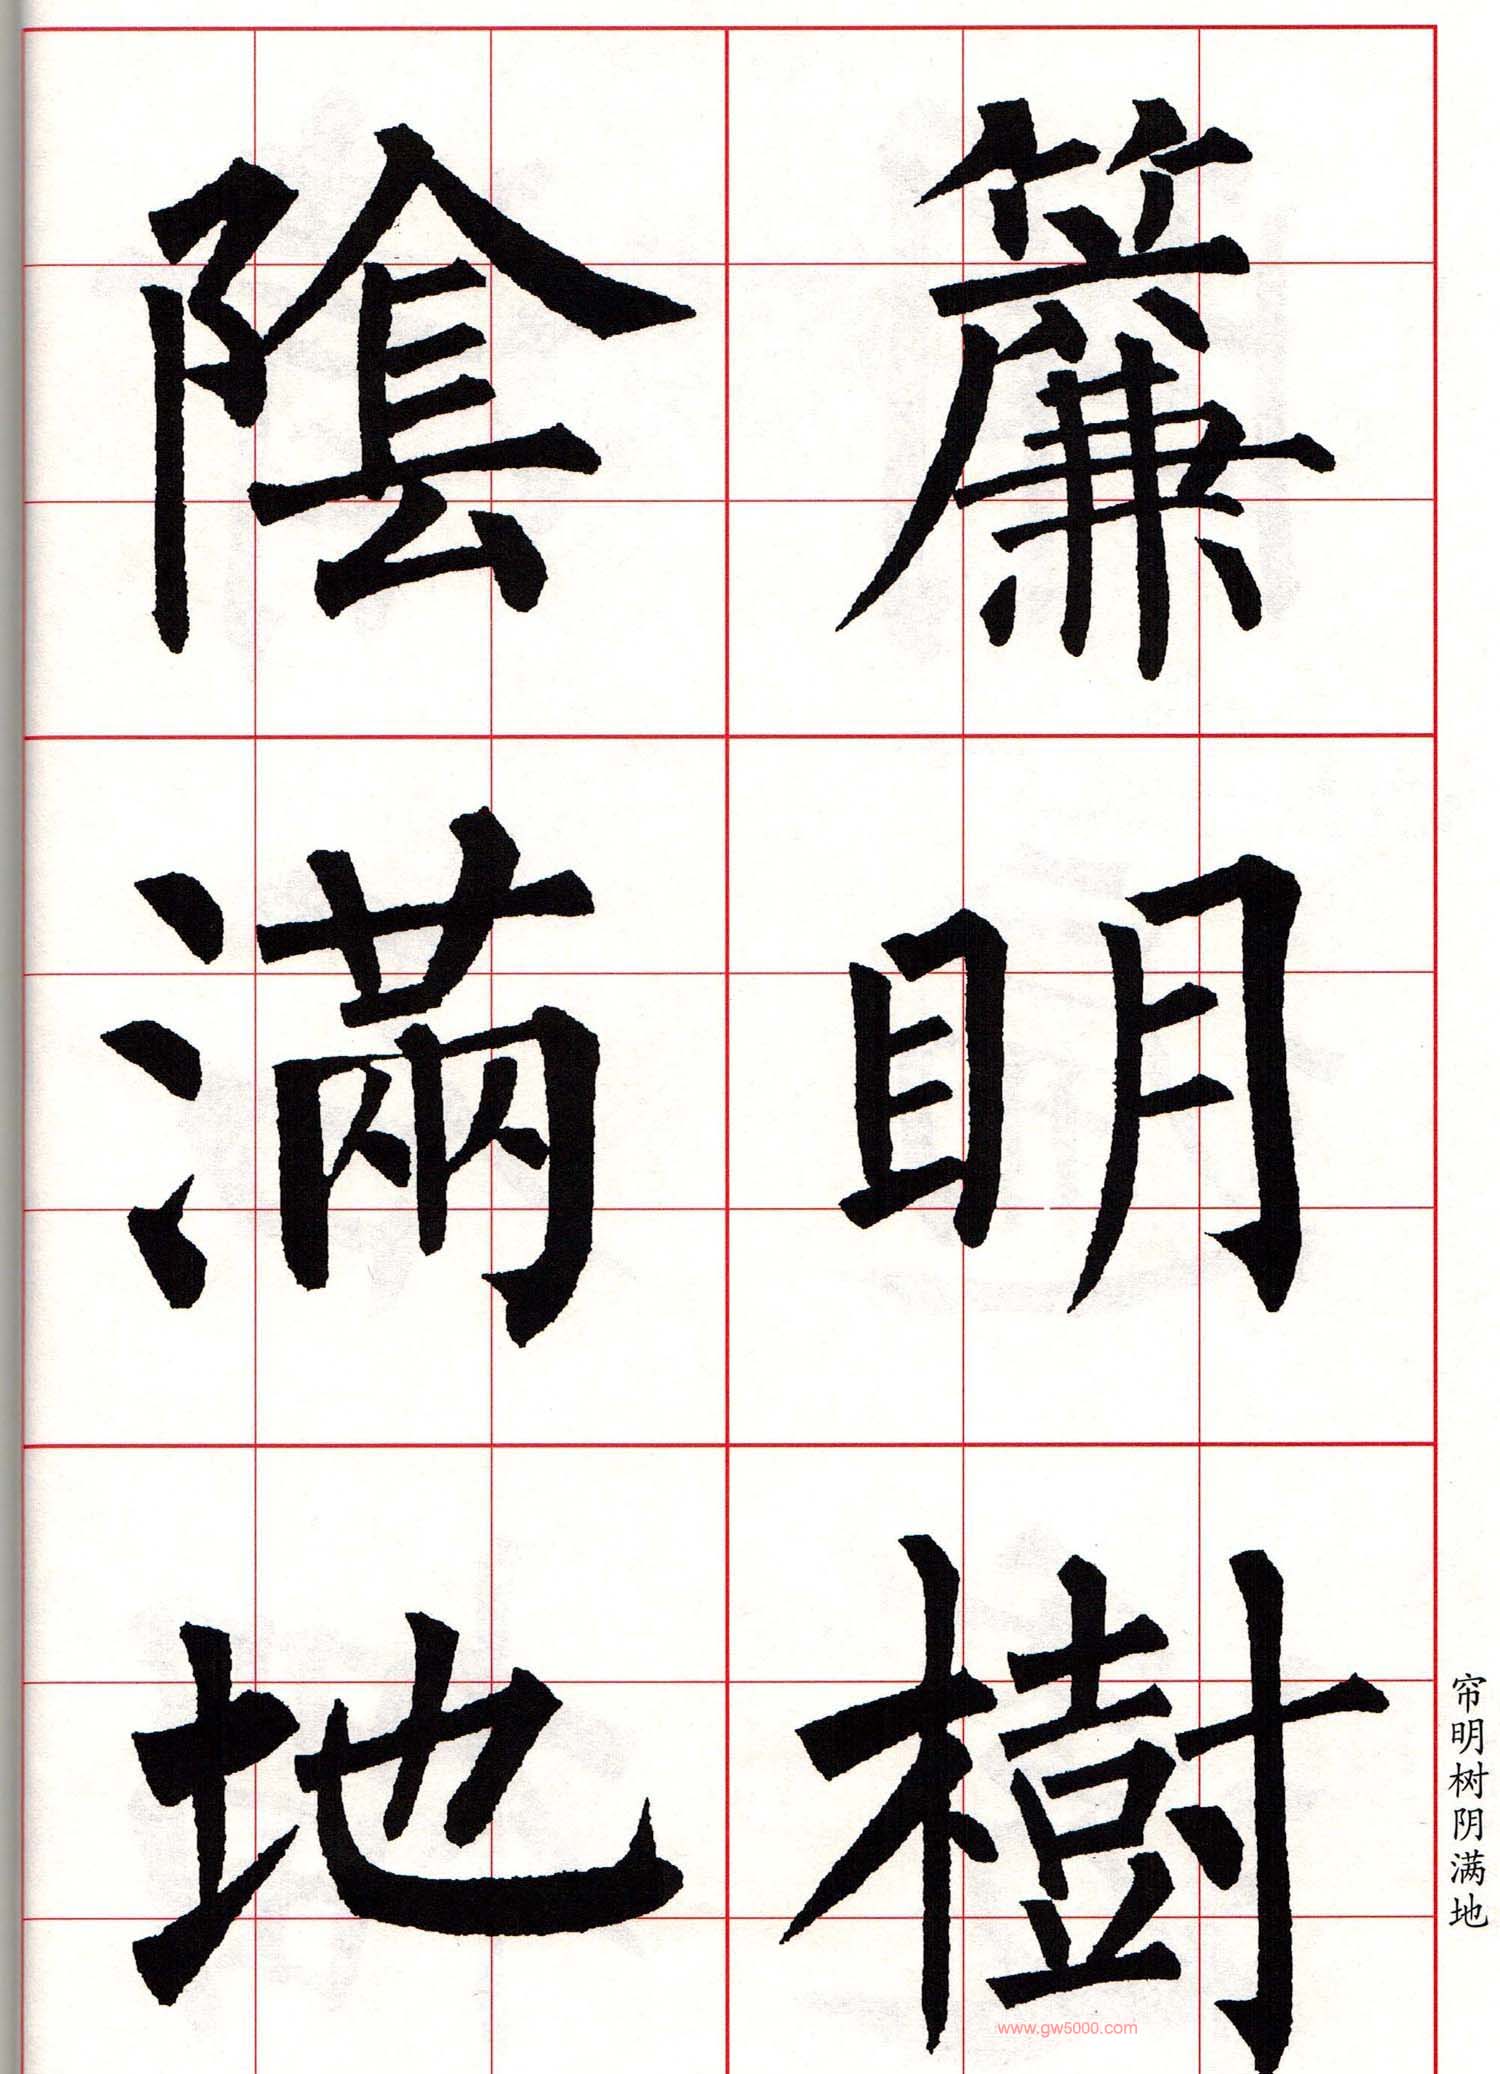 簾明樹
陰滿地
帘明树阴满地
www.gw5000.com